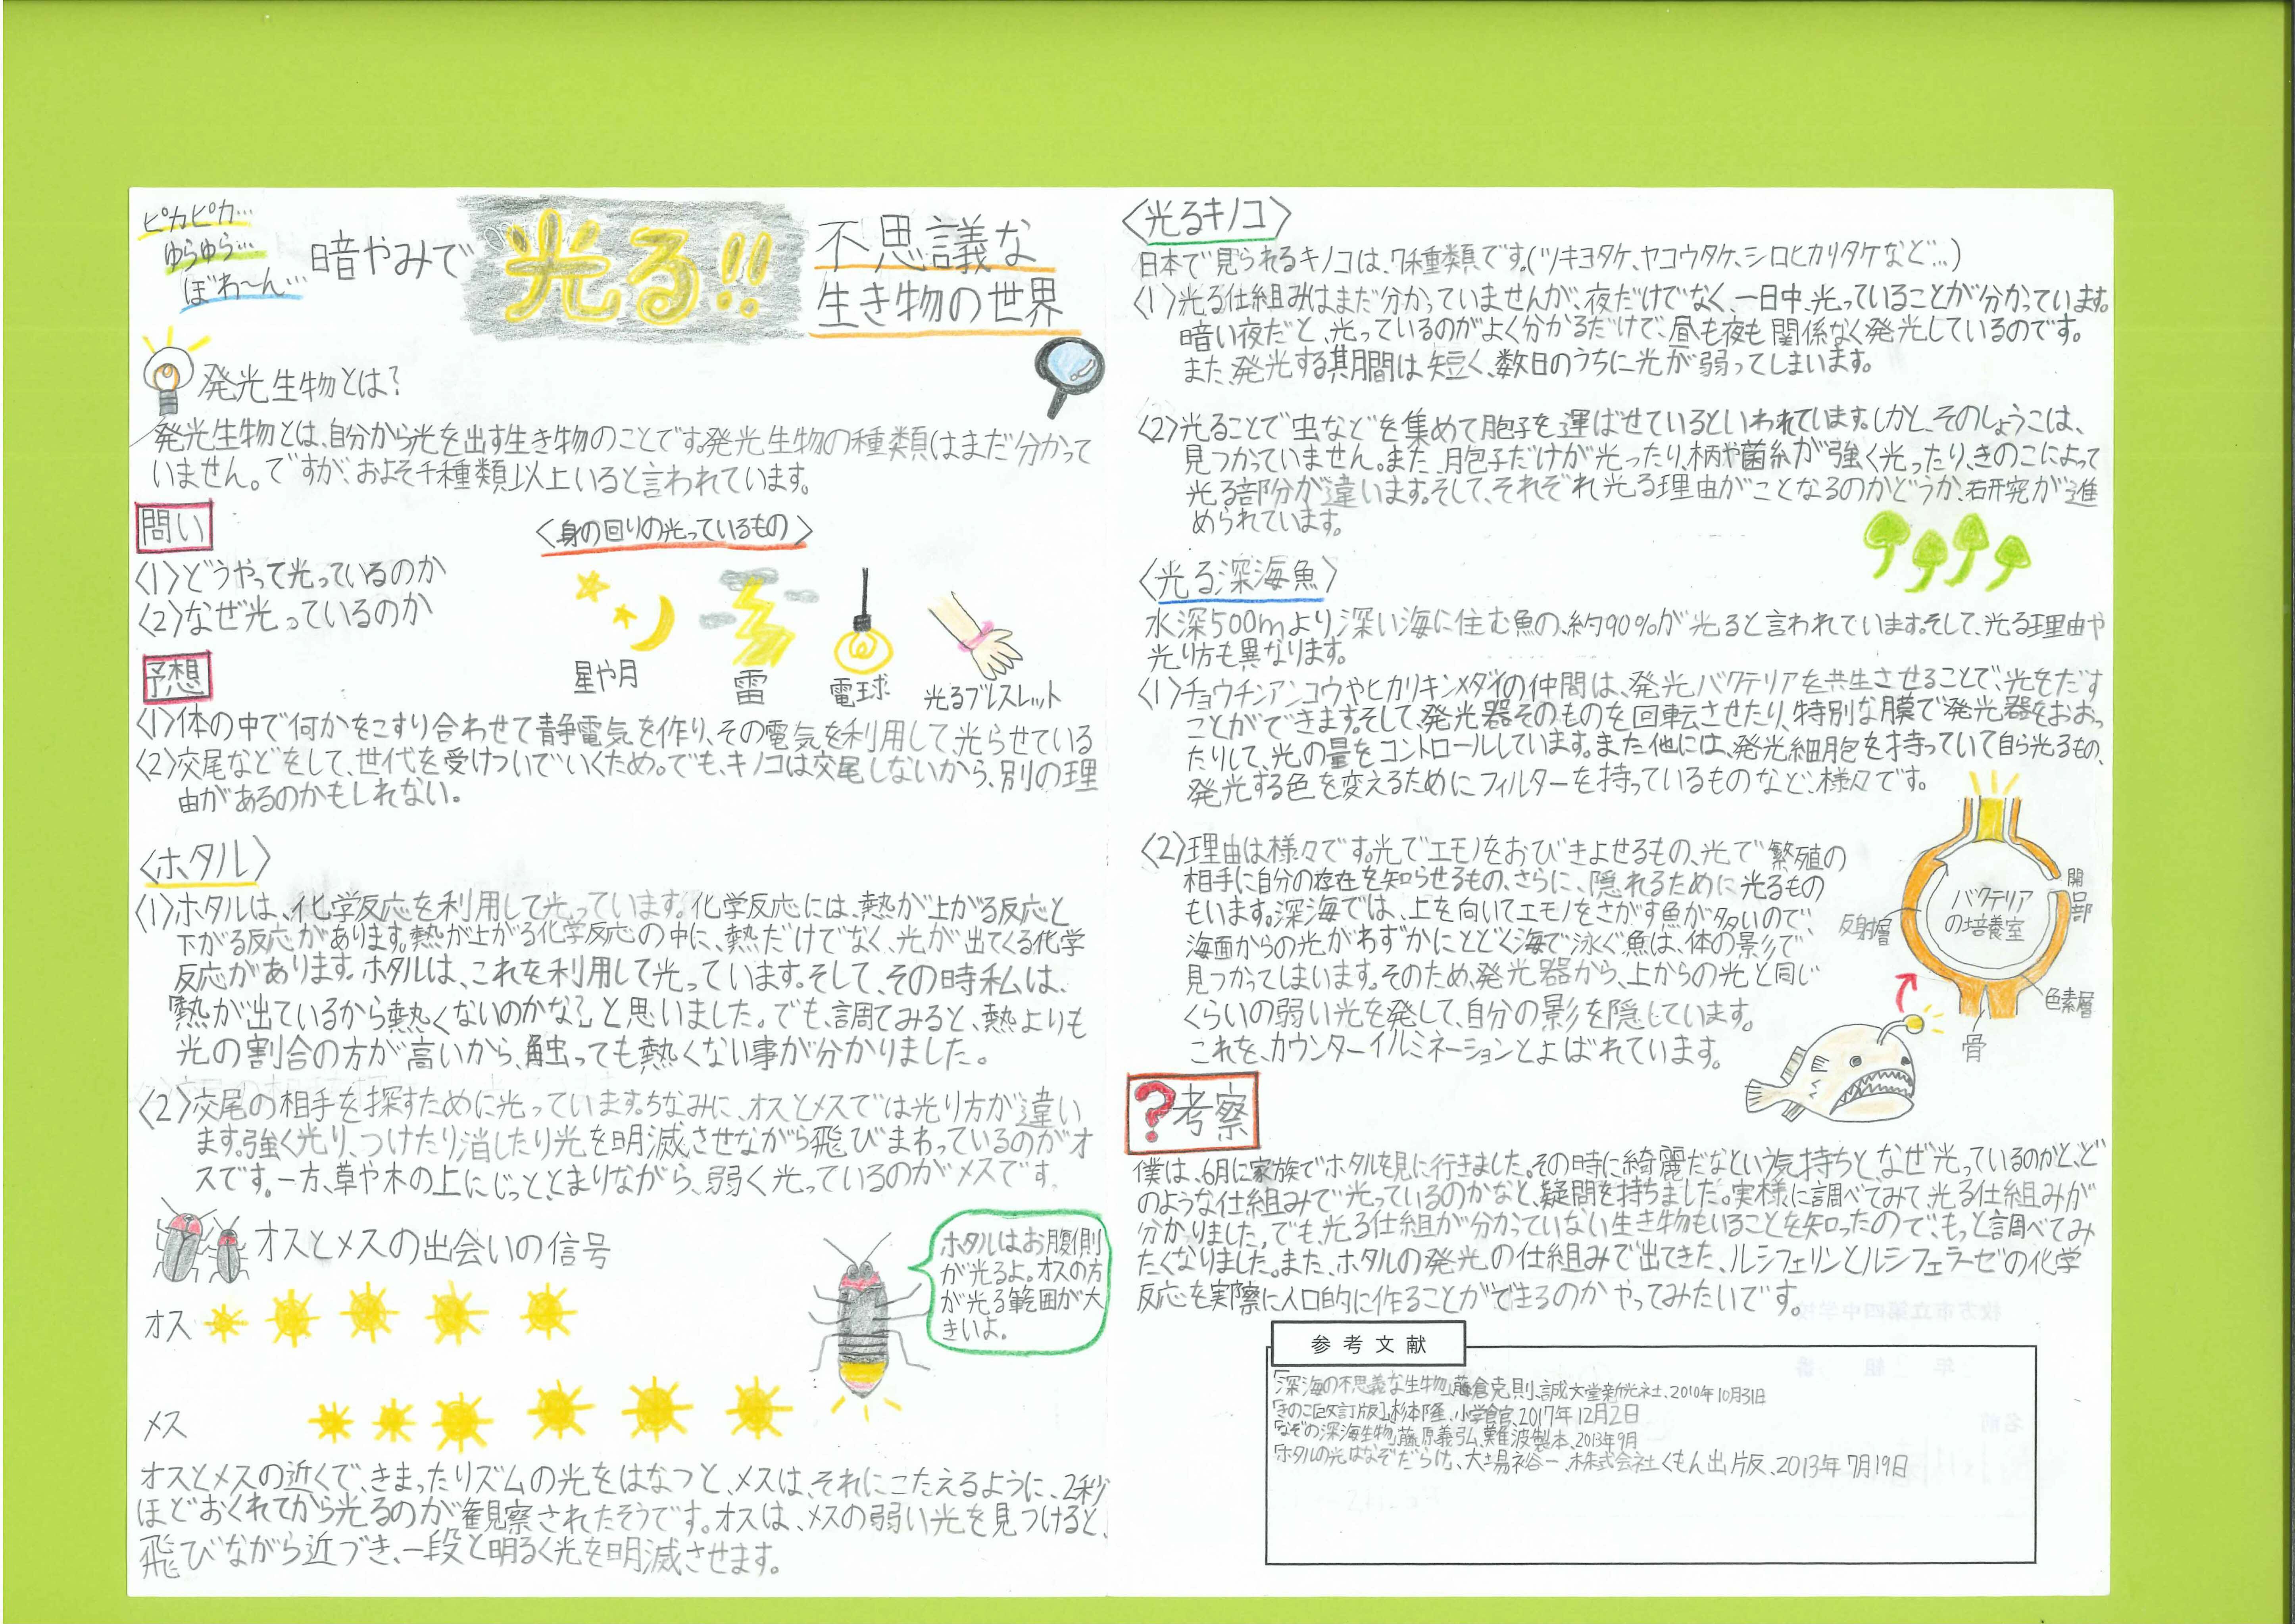 ピカピカ…
ゆらゆら…
ぼわ〜ん…
暗やみで
光る!!
不思議な
生き物の世界
発光生物とは?
発光生物とは、自分から光を出す生き物のことです。発光生物の種類はまだ分かって
いません。ですが、およそ千種類以上いると言われています。
問い
〈1〉どうやって光っているのか
〈2〉なぜ光っているのか
〈身の回りの光っているもの〉
星や月
雷
電球
光るブレスレット
予想
〈1〉体の中で何かをこすり合わせて静電気を作り、その電気を利用して、光らせている
〈2〉交尾などをして、世代を受けついでいくため。でも、キノコは交尾しないから、別の理
由があるのかもしれない。
〈ホタル〉
〈1〉ホタルは、化学反応を利用して光っています。化学反応には、熱が上がる反応と
下がる反応があります。熱が上がる化学反応の中に、熱だけでなく、光が出てくる化学
反応があります。ホタルは、これを利用して光っています。そして、その時私は、
「熱が出ているから熱くないのかな?」と思いました。でも、調てみると、熱よりも
光の割合の方が高いから、触っても熱くない事が分かりました。
〈2〉交尾の相手を探すために光っています。ちなみに、オスとメスでは光り方が違い
ます。強く光り、つけたり消したり光を明滅させながら飛びまわっているのがオ
スです。一方、草や木の上にじっと、とまりながら、弱く光っているのがメスです。
オスとメスの出会いの信号
オス
メス
ホタルはお腹側
が光るよ。オスの方
が光る範囲が大
きいよ。
オスとメスの近くで、きまったリズムの光をはなつと、メスは、それにこたえるように、2秒
ほどおくれてから光るのが観察されたそうです。オスは、メスの弱い光を見つけると、
飛びながら近づき、一段と明るく光を明滅させます。
〈光るキノコ〉
日本で見られるキノコは、7種類です。(ツキヨタケ、ヤコウタケ、シロヒカリタケなど…)
〈1〉光る仕組みはまだ分かっていませんが、夜だけでなく、一日中、光っていることが分かっています。
暗い夜だと、光っているのがよく分かるだけで、昼も夜も関係なく発光しているのです。
また、発光する其月間は短く、数日のうちに光が弱ってしまいます。
〈2〉光ることで虫などを集めて胞子を運ばせているといわれています。しかし、そのしょうこは、
見つかっていません。また、胞子だけが光ったり、柄や菌糸が強く光ったり、きのこによって
光る部分が違います。そして、それぞれ光る理由がことなるのかどうか、研究が進
められています。
〈光る深海魚〉
水深500mより深い海に住む魚の、約90%が光ると言われています。そして、光る理由や
光り方も異なります。
〈1〉チョウチンアンコウやヒカリキンメダイの仲間は、発光バクテリアを共生させることで、光をだす
ことができます。そして、発光器そのものを回転させたり、特別な膜で発光器をおおっ
たりして、光の量をコントロールしています。また他には、発光細胞を持っていて自ら光るもの、
発光する色を変えるためにフィルターを持っているものなど、様々です。
〈2〉理由は様々です。光でエモノをおびきよせるもの、光で繁殖の
相手に自分の存在を知らせるもの、さらに、隠れるために光るもの
もいます。深海では、上を向いてエモノをさがす魚が多いので、
海面からの光がわずかにとどく海で泳ぐ魚は、体の影で
見つかってしまいます。そのため、発光器から、上からの光と同じ
くらいの弱い光を発して、自分の影を隠しています。
これを、カウンターイルミネーションとよばれています。
バクテリア
の培養室
開口部
反射層
色素層
骨
?考察
僕は、6月に家族でホタルを見に行きました。その時に綺麗だなという気持ちと、なぜ光っているのかと、ど
のような仕組みで光っているのかなと、疑問を持ちました。実様に調べてみて、光る仕組みが
分かりました。でも、光る仕組が分かっていない生き物もいることを知ったので、もっと調べてみ
たくなりました。また、ホタルの発光の仕組みで出てきた、ルシフェリンとルシフェラーゼの化学
反応を実際に人口的に作ることができるのかやってみたいです。
参考文献
「深海の不思義な生物」藤倉克則、誠文堂新光社、2010年10月31日
「きのこ[改訂版]」杉本隆、小学食官、2017年12月2日
「なぞの深海生物」藤原義弘、難波製本、2013年9月
「ホタルの光はなぞだらけ」、大場裕一、株式会社くもん出版、2013年7月19日